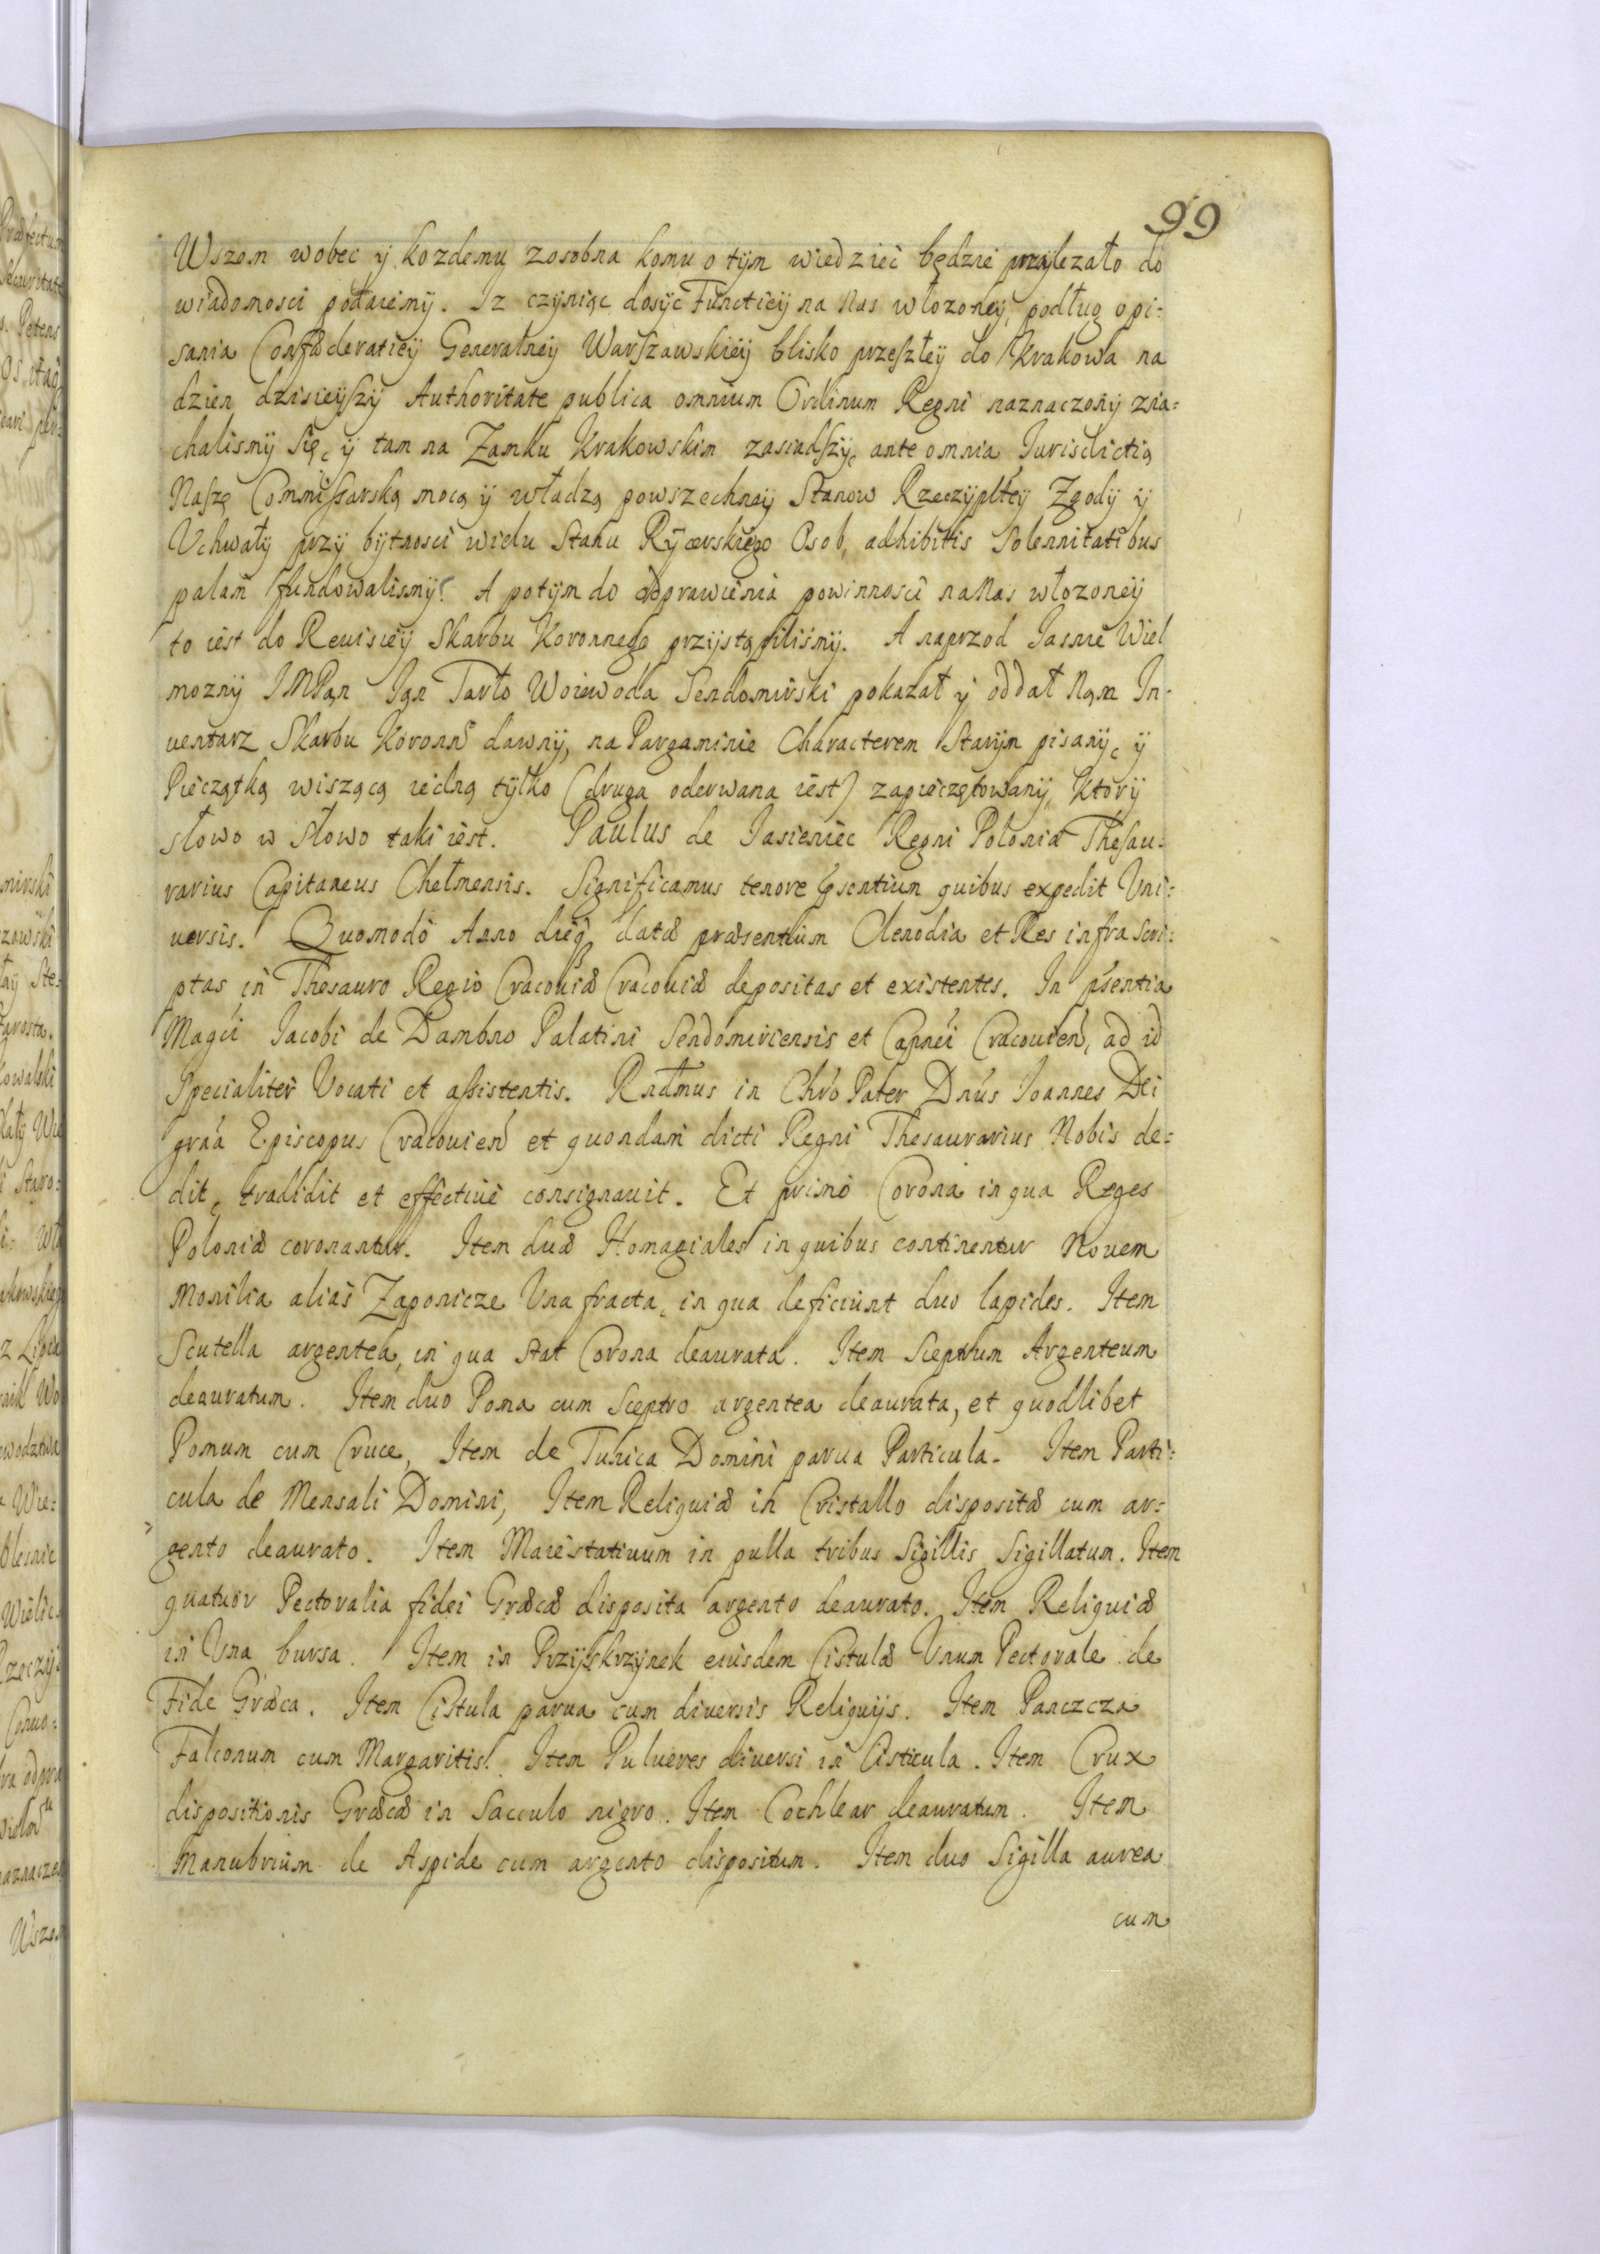 99
Wszem wobec ÿ kozdemu zosobna komu o tÿm wiedziec będzie przÿlezało do
wiadomosci podaiemÿ. Iz czÿniąc dosÿc Functieÿ na Nas włozoneÿ, podług opi:
sania Confæderatieÿ Generalneÿ Warszawskieÿ blisko przeszłeÿ do Krakowa na
dzien dzisieÿszÿ Authoritate publica omnium Ordinum Regni naznaczonÿ zia:
chalismÿ się, ÿ tam na Zamku Krakowskim zasiadszÿ, ante omnia Iurisdictią
Naszę Commissarską mocą ÿ władzą powszechneÿ Stanow Rzeczÿplteÿ Zgodÿ ÿ
Vchwałÿ przÿ bÿtnosci wielu Stanu Rÿcerskiego Osob, adhibitis Solennitatibus
palam fundowalismÿ. A potÿm do odprawienia powinnosci na Nas włozoneÿ
to iest do Reuisieÿ Skarbu Koronnego przÿstąpilismÿ. A naprzod Iasnie Wiel
moznÿ IMPan Ian Tarło Woiewoda Sendomirski pokazał ÿ oddał Nam In-
uentarz Skarbu Koronno dawnÿ, na Pargaminie Characterem Starÿm pisanÿ, ÿ
Pieczątką wiszącą iedną tÿlko (druga oderwana iest) zapieczętowanÿ, Ktorÿ
słowo w Słowo taki iest. Paulus de Iasieniec Regni Poloniæ Thesau:
rarius Capitaneus Chelmensis. Significamus tenore psentium quibus expedit Vni:
uersis. Quomodo Anno dieq datæ præsentium Clenodia et Res infra scri:
ptas in Thesauro Regio Cracouiæ Cracouiæ depositas et existentes. In psentia
Magci Iacobi de Dambno Palatini Sendomiriensis et Capnei Cracouien, ad id
Specialiter Vocati et assistentis. Rndmus in Chro Pater Dnus Ioannes Dei
graa Episcopus Cracouien et quondam dicti Regni Thesaurarius Nobis de:
dit, tradidit et effectiue consignauit. Et primo Corona in qua Reges
Poloniæ coronantur. Item duæ Homagiales in quibus continentur Nouem
Monilia alias Zaponicze Vna fracta, in qua deficiunt duo lapides. Item
Scutella argentea, in qua stat Corona deaurata. Item Sceptrum Argenteum
deauratum. Item duo Poma cum Sceptro argentea deaurata, et quodlibet
Pomum cum Cruce, Item de Tunica Domini parua Particula. Item Parti:
cula de Mensali Domini, Item Reliquiæ in Cristallo dispositæ cum ar:
gento deaurato. Item Maiestatiuum in pulla tribus Sigillis Sigillatum. Item
quatuor Pectoralia fidei Græcæ disposita argento deaurato. Item Reliquiæ
in Vna bursa. Item in Przÿskrzÿnek eiusdem Cistulæ Vnum Pectorale de
Fide Græca. Item Cistula parua cum diuersis Reliquÿs. Item Panczcza
Falconum cum Margaritis. Item Pulueres diuersi in Cisticula. Item Crux
dispositionis Græcæ in Sacculo nigro. Item Cochlear deauratum. Item
Manubrium de Aspide cum argento dispositum. Item duo Sigilla aurea
cum